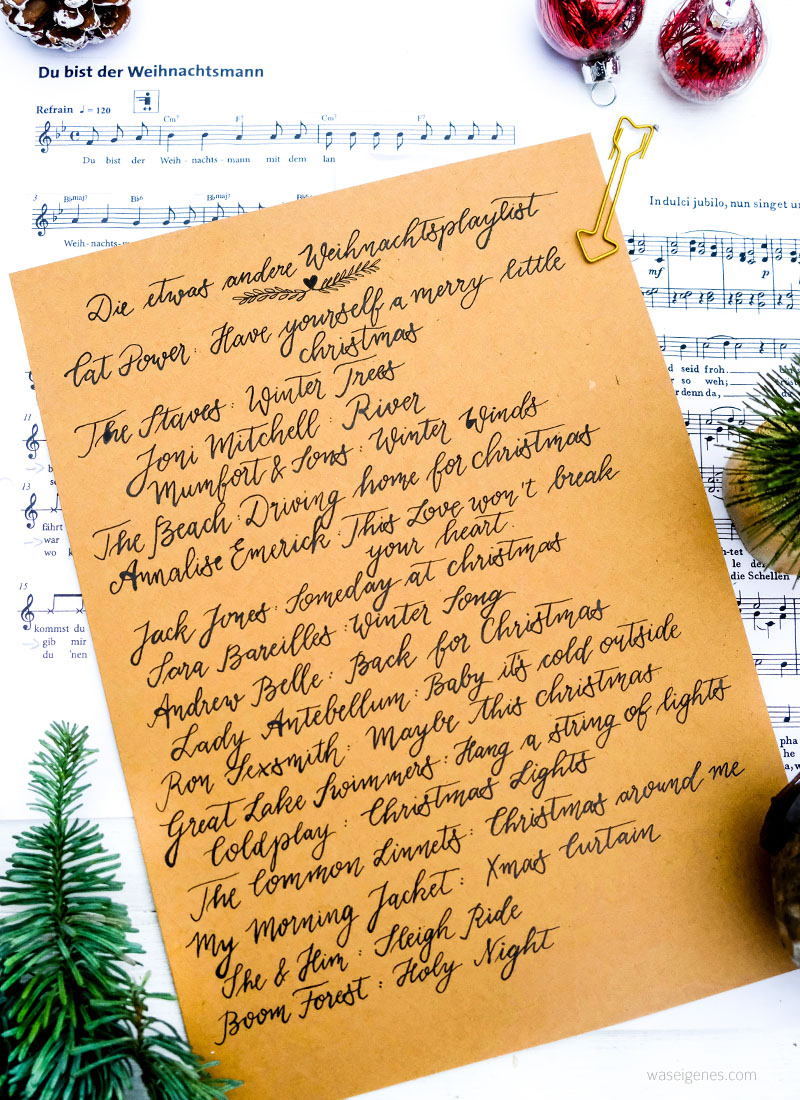 Du bist der Weihnachtsmann
Refrain ♩ = 120
Cm7 F7 Cm7 F7
Du bist der Weih - nachts - mann mit dem lan
3 B♭maj7 B♭6 B♭maj7
Weih - nachts - m
In dulci jubilo, nun singet un
mf p
d seid froh.
r so weh;
r denn da,
11
15
fährt
war
wo
kommst du
gib mir
du 'nen
-tet
le der
die Schellen
pha
he
Die etwas andere Weihnachtsplaylist
Cat Power: Have yourself a merry little
christmas
The Staves: Winter Trees
Joni Mitchell: River
Mumfort & Sons: Winter Winds
The Beach: Driving home for christmas
Annalise Emerick: This Love won't break
your heart.
Jack Jones: Someday at christmas
Sara Bareilles: Winter Song
Andrew Belle: Back for Christmas
Lady Antebellum: Baby it's cold outside
Ron Sexsmith: Maybe this christmas
Great Lake Swimmers: Hang a string of lights
Coldplay: Christmas Lights
The Common Linnets: Christmas around me
My Morning Jacket: Xmas Curtain
She & Him: Sleigh Ride
Boom Forest: Holy Night
waseigenes.com